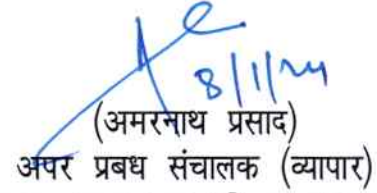 8/1/24
(अमरनाथ प्रसाद)
अपर प्रबध संचालक (व्यापार)